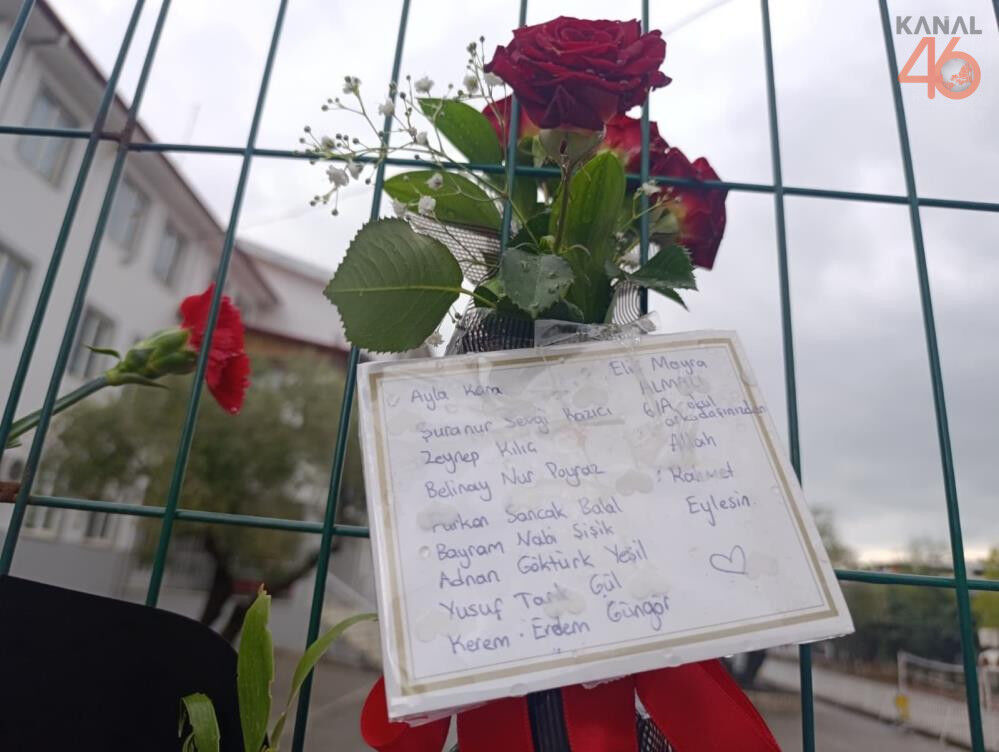 KANAL
46
Ayla Kara
Şuranur Sevgi Kazıcı
Zeynep Kılıç
Belinay Nur Poyraz
Furkan Sancak Balal
Bayram Nabi Şişik
Adnan Göktürk Yeşil
Yusuf Tarık Gül
Kerem Erdem Güngör
Mayra
6/A okul
arkadaşınızdan
Allah
Rahmet
Eylesin